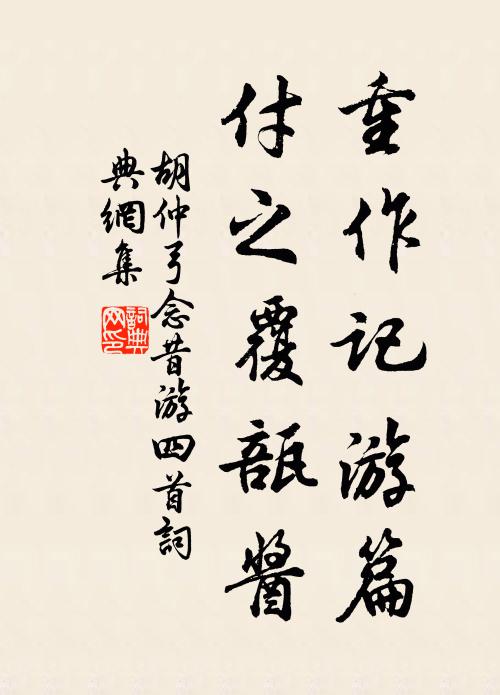 重作记游篇
付之覆瓿醬
胡仲弓念昔游四首詞
典網集
詞典网印